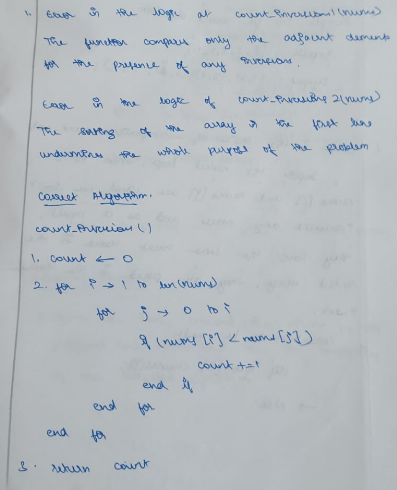 1. Error in the logic at count_inversions1(nums)
The function compares only the adjacent elements
for the presence of any inversions.
Error in the logic of count_inversions2(nums)
The sorting of the array is the first line
undermines the whole purpose of the problem
Correct Algorithm.
count_inversion()
1. count ← 0
2. for i → 1 to len(nums)
for j → 0 to i
if (nums[i] < nums[j])
count += 1
end if
end for
end for
3. return count